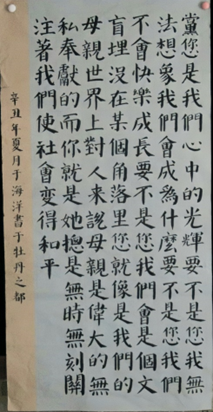 黨您是我們心中的光輝要不是您我無
法想象我們會成為什麼要不是您我們
不會快樂成長要不是您我們會是個文
盲埋沒在某個角落里您就像是我們的
母親世界上對人来說母親是偉大的無
私奉獻的而你就是她摠是無時無刻關
注著我們使社會變得和平
辛丑年夏月于海洋書于牡丹之都